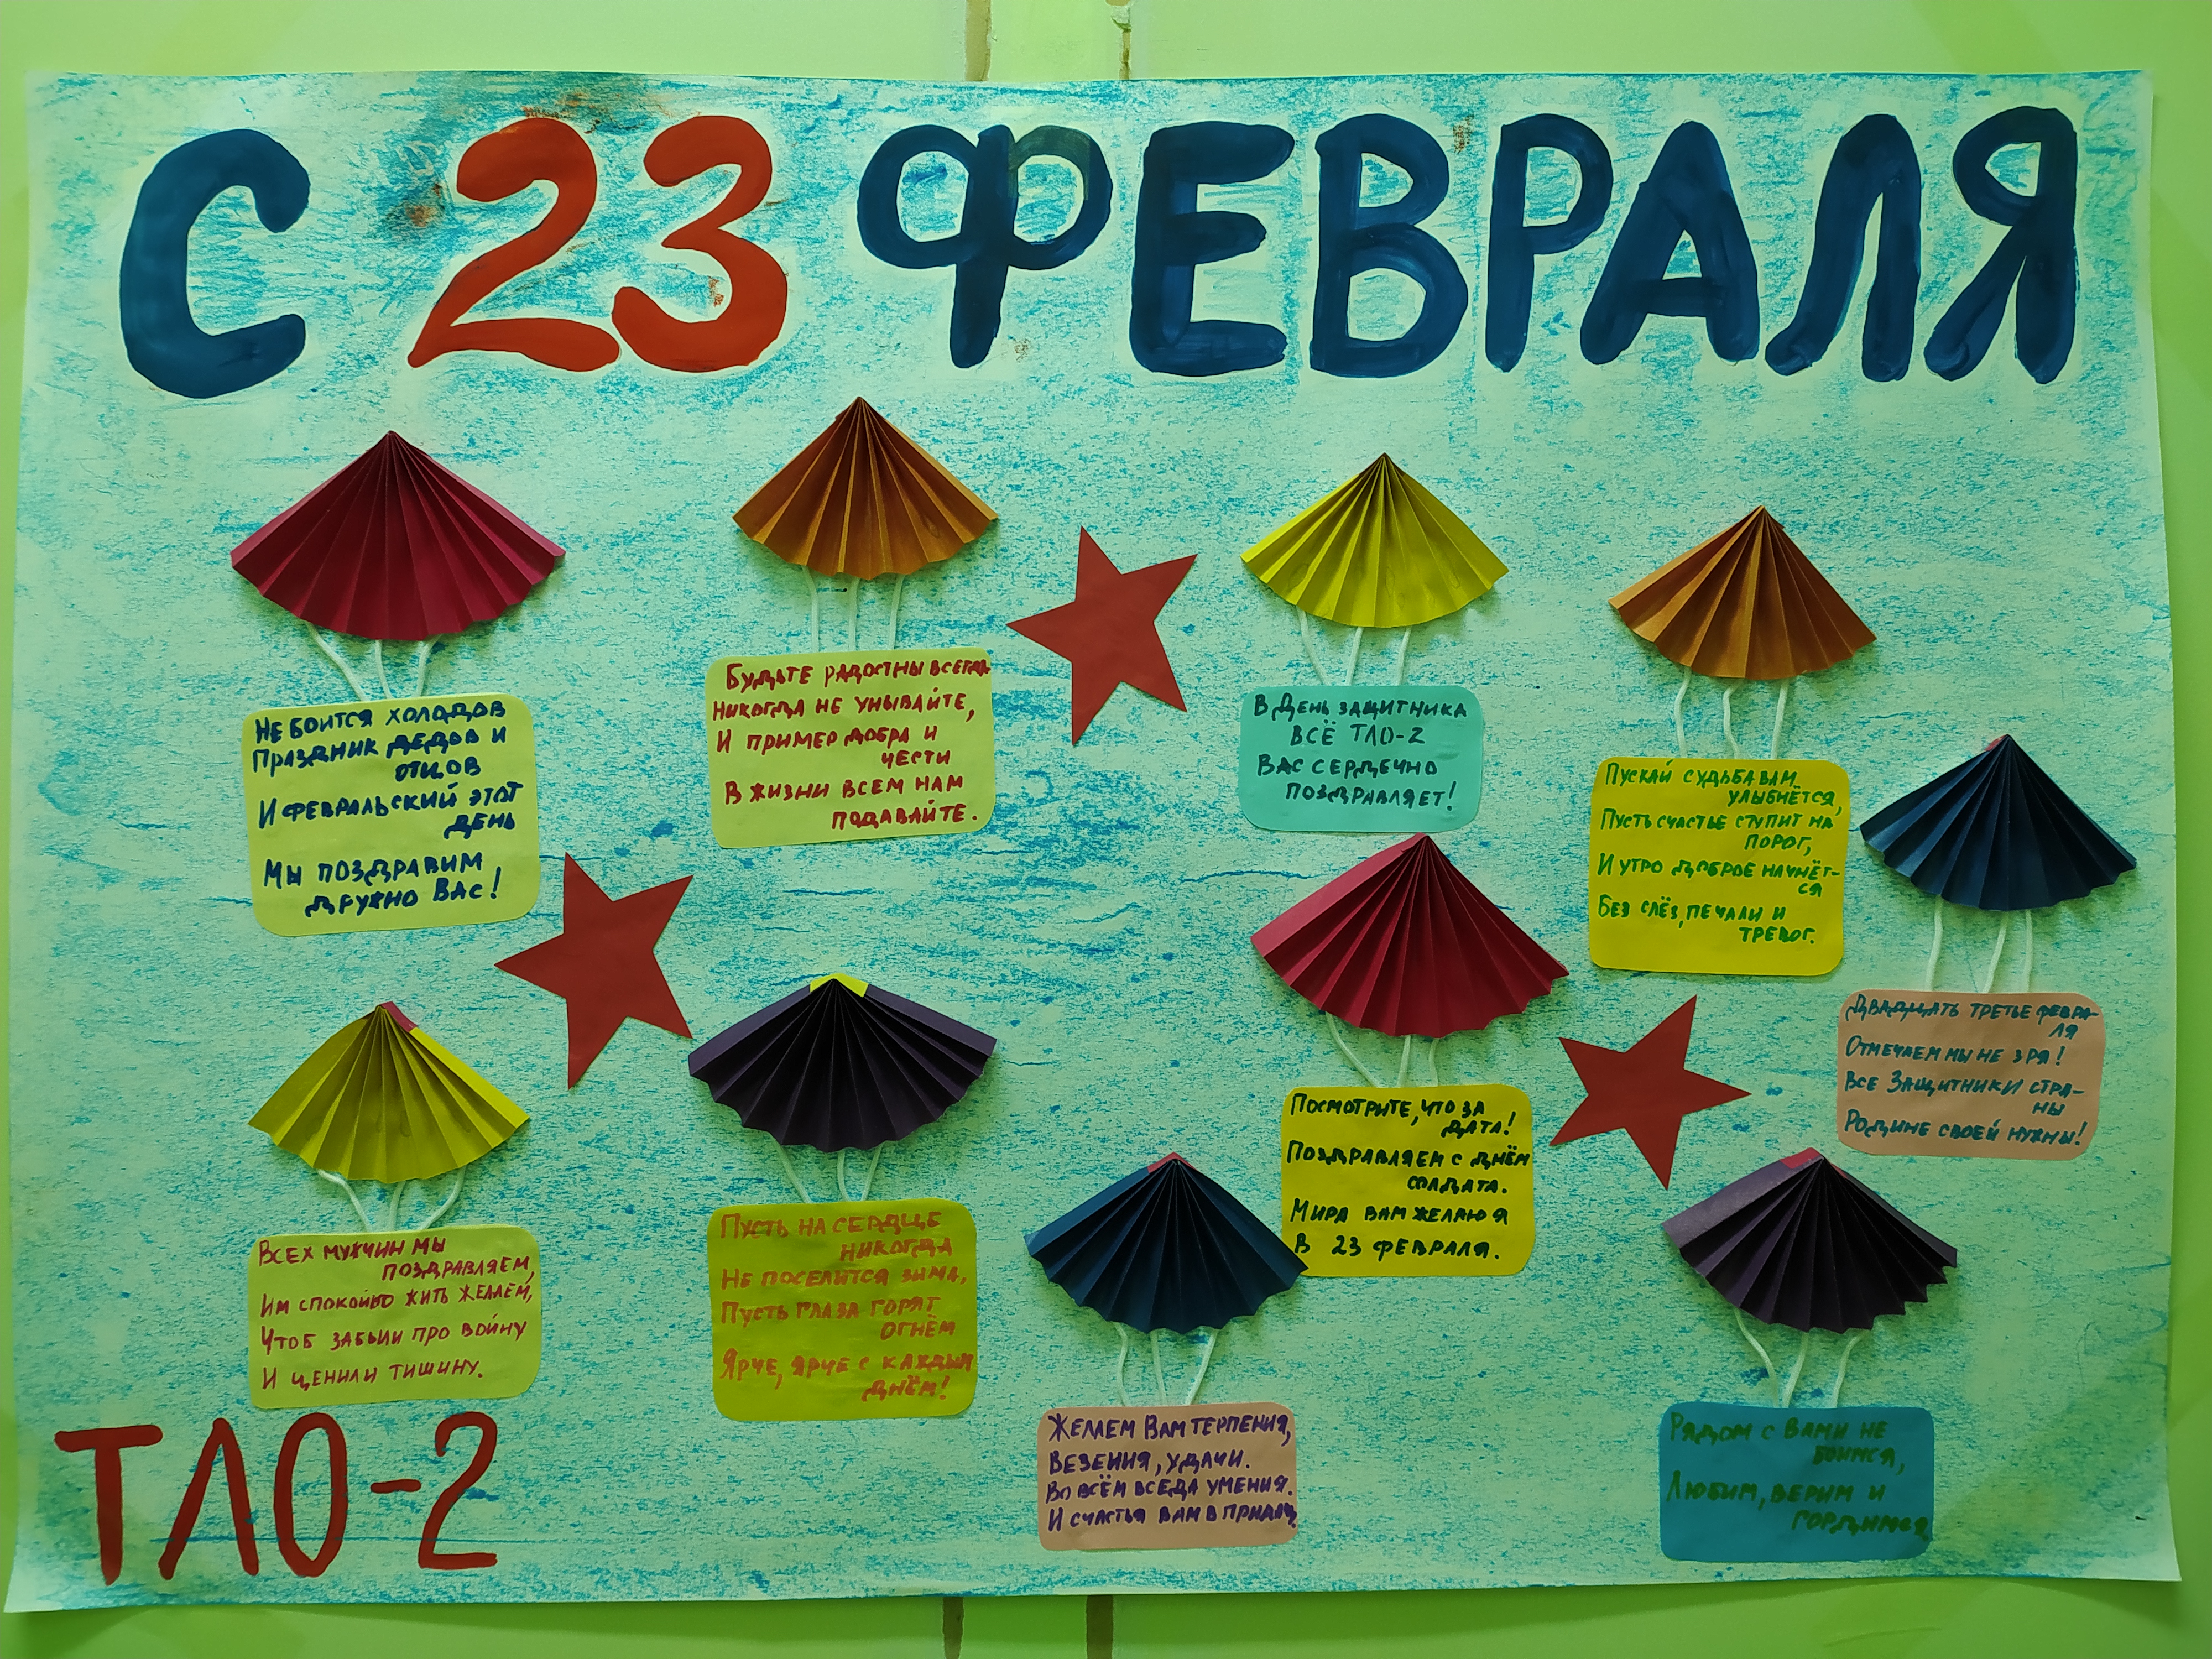 С 23 ФЕВРАЛЯ
НЕ БОИТСЯ ХОЛОДОВ
ПРАЗДНИК ДЕДОВ И
ОТЦОВ
И ФЕВРАЛЬСКИЙ ЭТОТ
ДЕНЬ
МЫ ПОЗДРАВИМ
ДРУЖНО ВАС!
БУДЬТЕ РАДОСТНЫ ВСЕГДА
НИКОГДА НЕ УНЫВАЙТЕ,
И ПРИМЕР ДОБРА И
ЧЕСТИ
В ЖИЗНИ ВСЕМ НАМ
ПОДАВАЙТЕ.
В ДЕНЬ ЗАЩИТНИКА
ВСЁ ТЛО-2
ВАС СЕРДЕЧНО
ПОЗДРАВЛЯЕТ!
ПУСКАЙ СУДЬБА ВАМ
УЛЫБНЁТСЯ,
ПУСТЬ СЧАСТЬЕ СТУПИТ НА
ПОРОГ,
И УТРО ДОБРОЕ НАЧНЁТ-
СЯ
БЕЗ СЛЁЗ, ПЕЧАЛИ И
ТРЕВОГ.
ДВАДЦАТЬ ТРЕТЬЕ ФЕВРА-
ЛЯ
ОТМЕЧАЕМ МЫ НЕ ЗРЯ!
ВСЕ ЗАЩИТНИКИ СТРА-
НЫ
РОДИНЕ СВОЕЙ НУЖНЫ!
ВСЕХ МУЖЧИН МЫ
ПОЗДРАВЛЯЕМ,
ИМ СПОКОЙНО ЖИТЬ ЖЕЛАЕМ,
ЧТОБ ЗАБЫЛИ ПРО ВОЙНУ
И ЦЕНИЛИ ТИШИНУ.
ПУСТЬ НА СЕРДЦЕ
НИКОГДА
НЕ ПОСЕЛИТСЯ ЗИМА,
ПУСТЬ ГЛАЗА ГОРЯТ
ОГНЁМ
ЯРЧЕ, ЯРЧЕ С КАЖДЫМ
ДНЁМ!
ПОСМОТРИТЕ, ЧТО ЗА
ДАТА!
ПОЗДРАВЛЯЕМ С ДНЁМ
СОЛДАТА.
МИРА ВАМ ЖЕЛАЮ Я
В 23 ФЕВРАЛЯ.
ЖЕЛАЕМ ВАМ ТЕРПЕНИЯ,
ВЕЗЕНИЯ, УДАЧИ.
ВО ВСЁМ ВСЕДА УМЕНИЯ.
И СЧАСТЬЯ ВАМ В ПРИДАЧУ.
РЯДОМ С ВАМИ НЕ
БОИМСЯ,
ЛЮБИМ, ВЕРИМ И
ГОРДИМСЯ
ТЛО-2